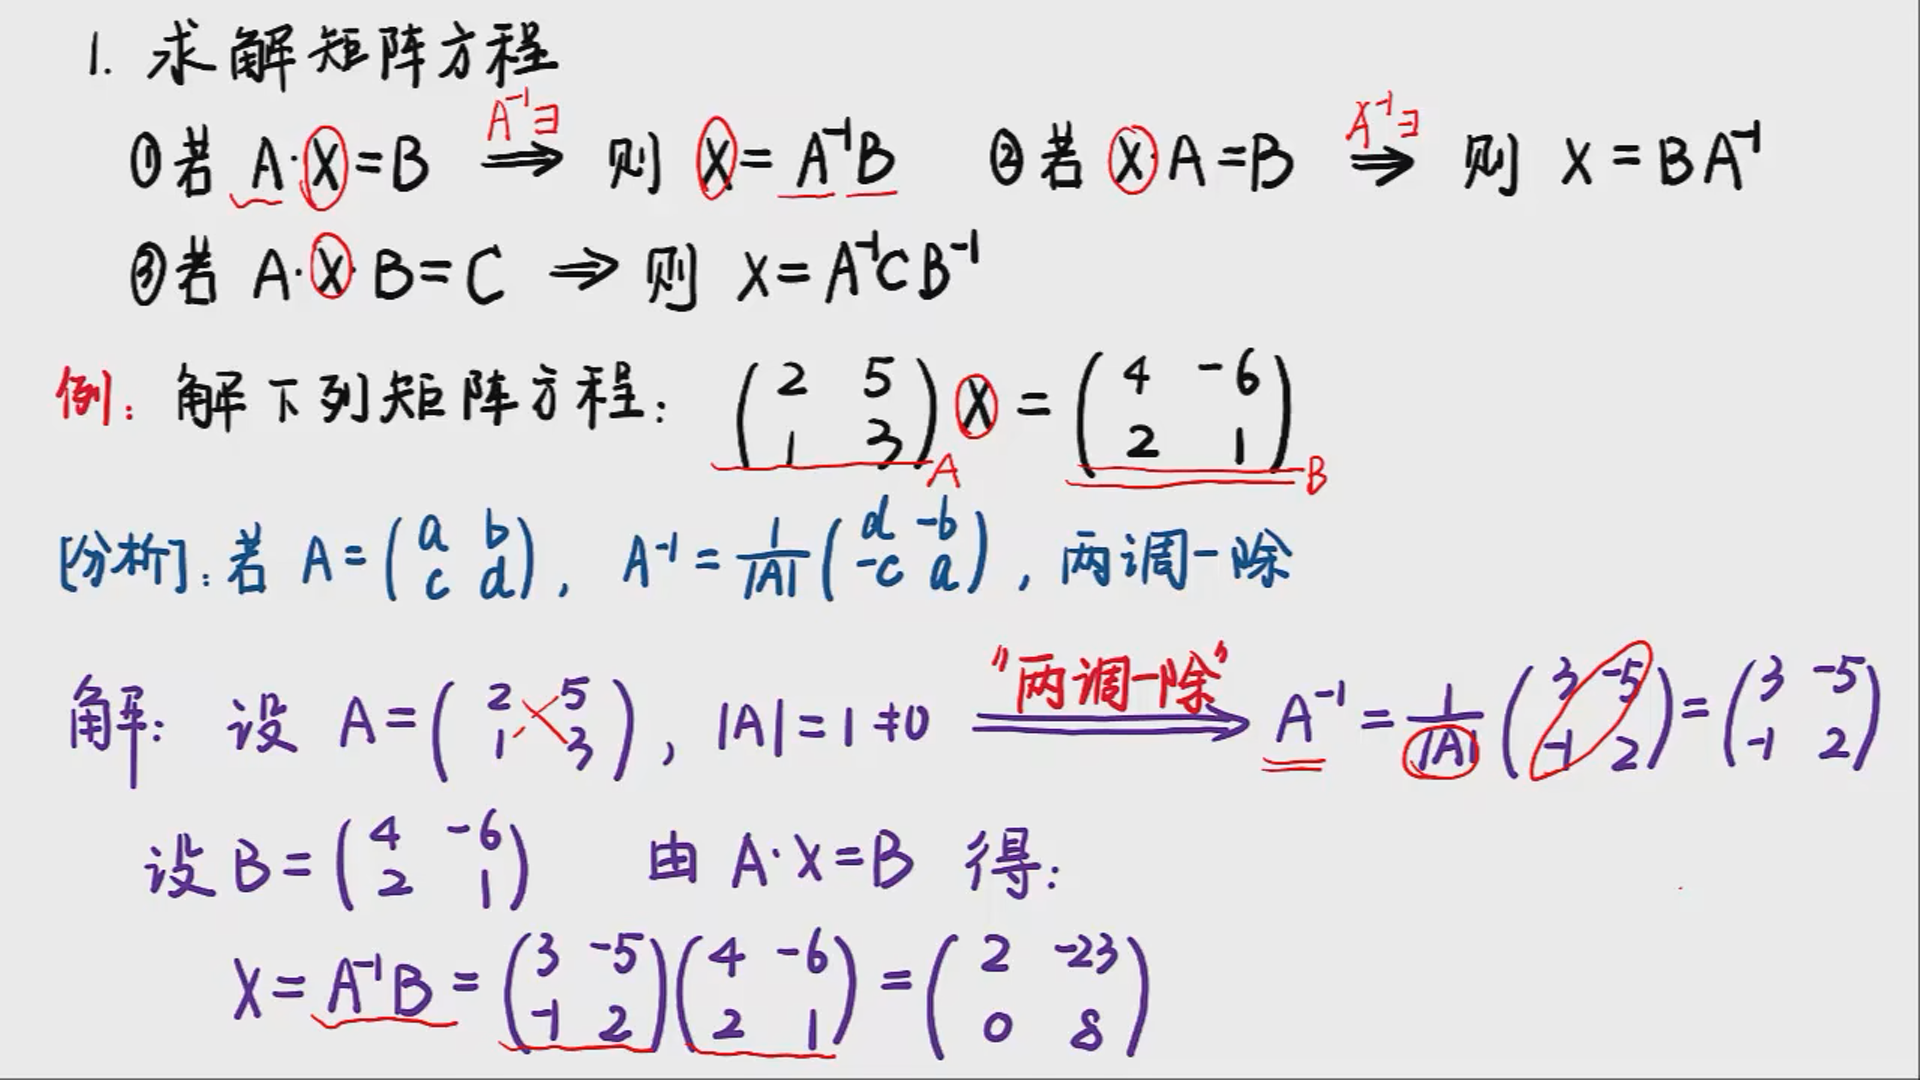 1. 求解矩阵方程
①若 A·X=B A⁻¹∃ ⟹ 则 X=A⁻¹B ②若 X·A=B A⁻¹∃ ⟹ 则 X=BA⁻¹
③若 A·X·B=C ⟹ 则 X=A⁻¹CB⁻¹
例: 解下列矩阵方程: (2 5; 1 3) X = (4 -6; 2 1)
A B
[分析]: 若 A=(a b; c d), A⁻¹=1/|A| (d -b; -c a), 两调一除
解: 设 A=(2 5; 1 3), |A|=1≠0 "两调一除" ⟹ A⁻¹=1/|A| (3 -5; -1 2)=(3 -5; -1 2)
设 B=(4 -6; 2 1) 由 A·X=B 得:
X=A⁻¹B=(3 -5; -1 2)(4 -6; 2 1)=(2 -23; 0 8)